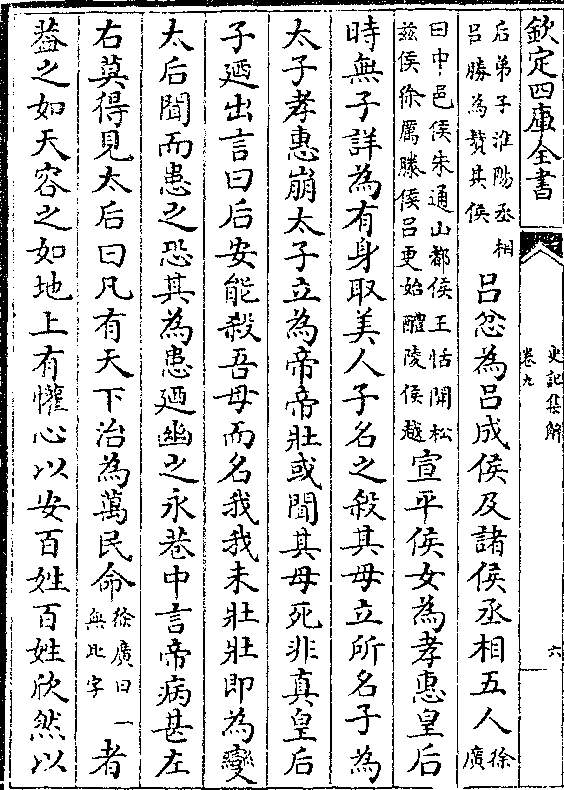 欽定四庫全書
史記集解
卷九
六
后弟子淮陽丞相
呂勝為贅其侯
呂忿為呂成侯及諸侯丞相五人
徐
廣
曰中邑侯朱通山都侯王恬開松
茲侯徐厲滕侯呂更始醴陵侯越
宣平侯女為孝惠皇后
時無子詳為有身取美人子名之殺其母立所名子為
太子孝惠崩太子立為帝帝壯或聞其母死非真皇后
子廼出言曰后安能殺吾母而名我我未壯壯即為變
太后聞而患之恐其為患廼幽之永巷中言帝病甚左
右莫得見太后曰凡有天下治為萬民命
徐廣曰一
無此字
者
葢之如天容之如地上有懽心以安百姓百姓欣然以